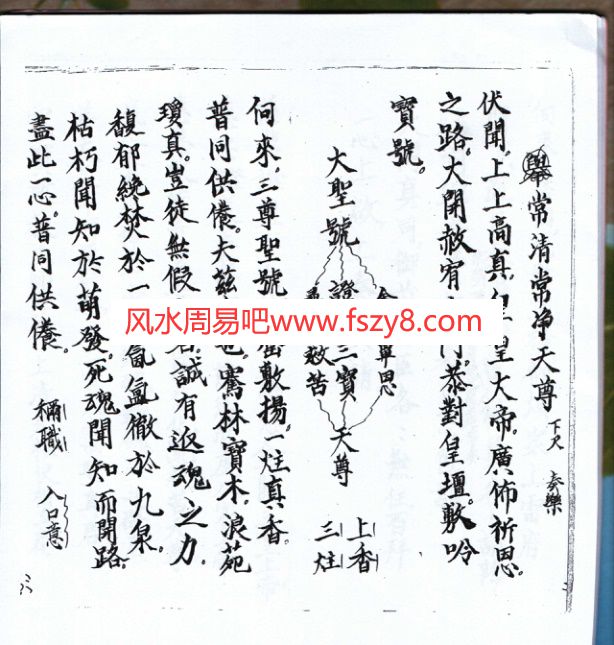 舉常清常净天尊 下尺 奏樂
伏聞。上上高真。皇大帝。廣佈祈恩。
之路。大開赦宥門。恭對皇壇。敷吟
寶號。
大聖號
證三寶
救苦
天尊
上香
三炷
何來。三尊聖號敷揚。一炷真香。
普同供養。夫兹騫林寶木。浪苑
瓊真。豈徒無假名。誠有返魂之力。
馥郁繞焚於一氤氲徹於九泉。
枯朽聞知於萌發。死魂聞知而開路。
盡此一心。普同供養。 稱職 入口意
风水周易吧www.fszy8.com